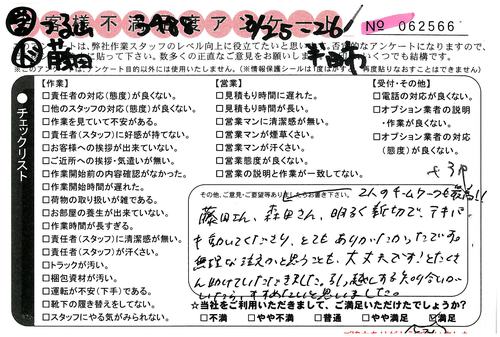 客様不満足度アンケート
3/25~26
No 062566
のアンケートは、弊社作業スタッフのレベル向上に役立てたいと思い
数多くの正直なご意見をお願いします
※このアンケートは、アンケート目的以外には使用いたしません。
チェックリスト
【作業】
□責任者の対応(態度)が良くない。
□他のスタッフの対応(態度)が良くない。
□作業を見ていて不安がある。
□責任者(スタッフ)に好感が持てない。
□お客様への挨拶が出来ていない。
□ご近所への挨拶・気遣いが無い。
□作業開始前の内容確認がなかった。
□作業開始時間が遅れた。
□荷物の取り扱いが雑である。
□お部屋の養生が出来ていない。
□作業時間が長すぎる。
□責任者(スタッフ)に清潔感が無い。
□責任者(スタッフ)が汗くさい。
□トラックが汚い。
□梱包資材が汚い。
□運転が不安(下手)である。
□靴下の履き替えをしてない。
□スタッフにやる気がみられない。
【営業】
□見積もり時間に遅れた。
□見積もり時間が長い。
□営業マンに清潔感が無い。
□営業マンが煙草くさい。
□営業マンが汗くさい。
□営業態度が良くない。
□営業の説明と作業が一致してない。
【受付・その他】
□電話の対応が良くない。
□オプション業者の説明
・作業が良くない。
□オプション業者の対応
(態度)が良くない。
その他、ご意見・ご要望等ありましたらお書き下さい。
2人のチームワークも最高!!
藤田さん、森田さん、明るく親切で、テキパ
キ動いてくださり、とてもありがたかったです。
無理な注文かと思うことも、大丈夫です!とたくさ
ん助けていただきました。引っ越しする知り合いが
いたら、すすめたいと思いました。
☆当社をご利用いただきまして、ご満足いただけたでしょうか?
□不満 □やや不満 □普通 □やや満足 ☑満足